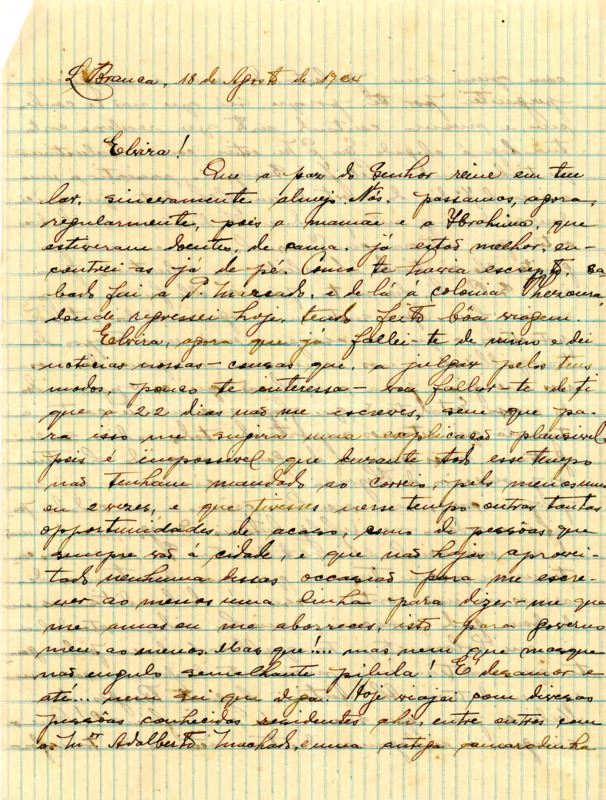 L. Branca, 18 de Agosto de 1924
Elvira!
Que a paz do Senhor reine em teu
lar, sinceramente almejo. Nós, passamos, agora,
regularmente, pois a mamãe e a Ibrahima, que
estiveram doentes, de cama, já estão melhor, en-
contrei-as já de pé. Como te havia escrepto, sa-
bado fui a P. Mercado, e de lá á colonia
donde regressei hoje, tendo feito bôa viagem.
Elvira, agora que já fallei-te de mim e dei
noticias nossas - cousas que, a julgar pelos teus
modos, pouco te interessa - vou fallar-te de ti
que a 22 dias não me escreves, sem que pa-
ra isso me sugira uma explicação plausivel
pois é impossivel que durante todo esse tempo
não tenham mandado ao correio, pelo menos uma
ou 2 vezes, e que tivesses nesse tempo outras tantas
opportunidades de acaso, como de pessôas que
sempre vão á cidade, e que não hajas aprovei-
tado nenhuma dessas occasiões para me escre-
ver ao menos uma linha para dizer-me que
me amas ou me aborreces, isto para governo
meu, ao menos. Mas que!... mas nem que masque
não engulo semelhante pilula! É desamor e
até... nem sei que diga. Hoje viajei com diversas
pessôas conhecidas residentes ahi, entre outras com
o Adalberto Machado, e uma antiga camaradinha